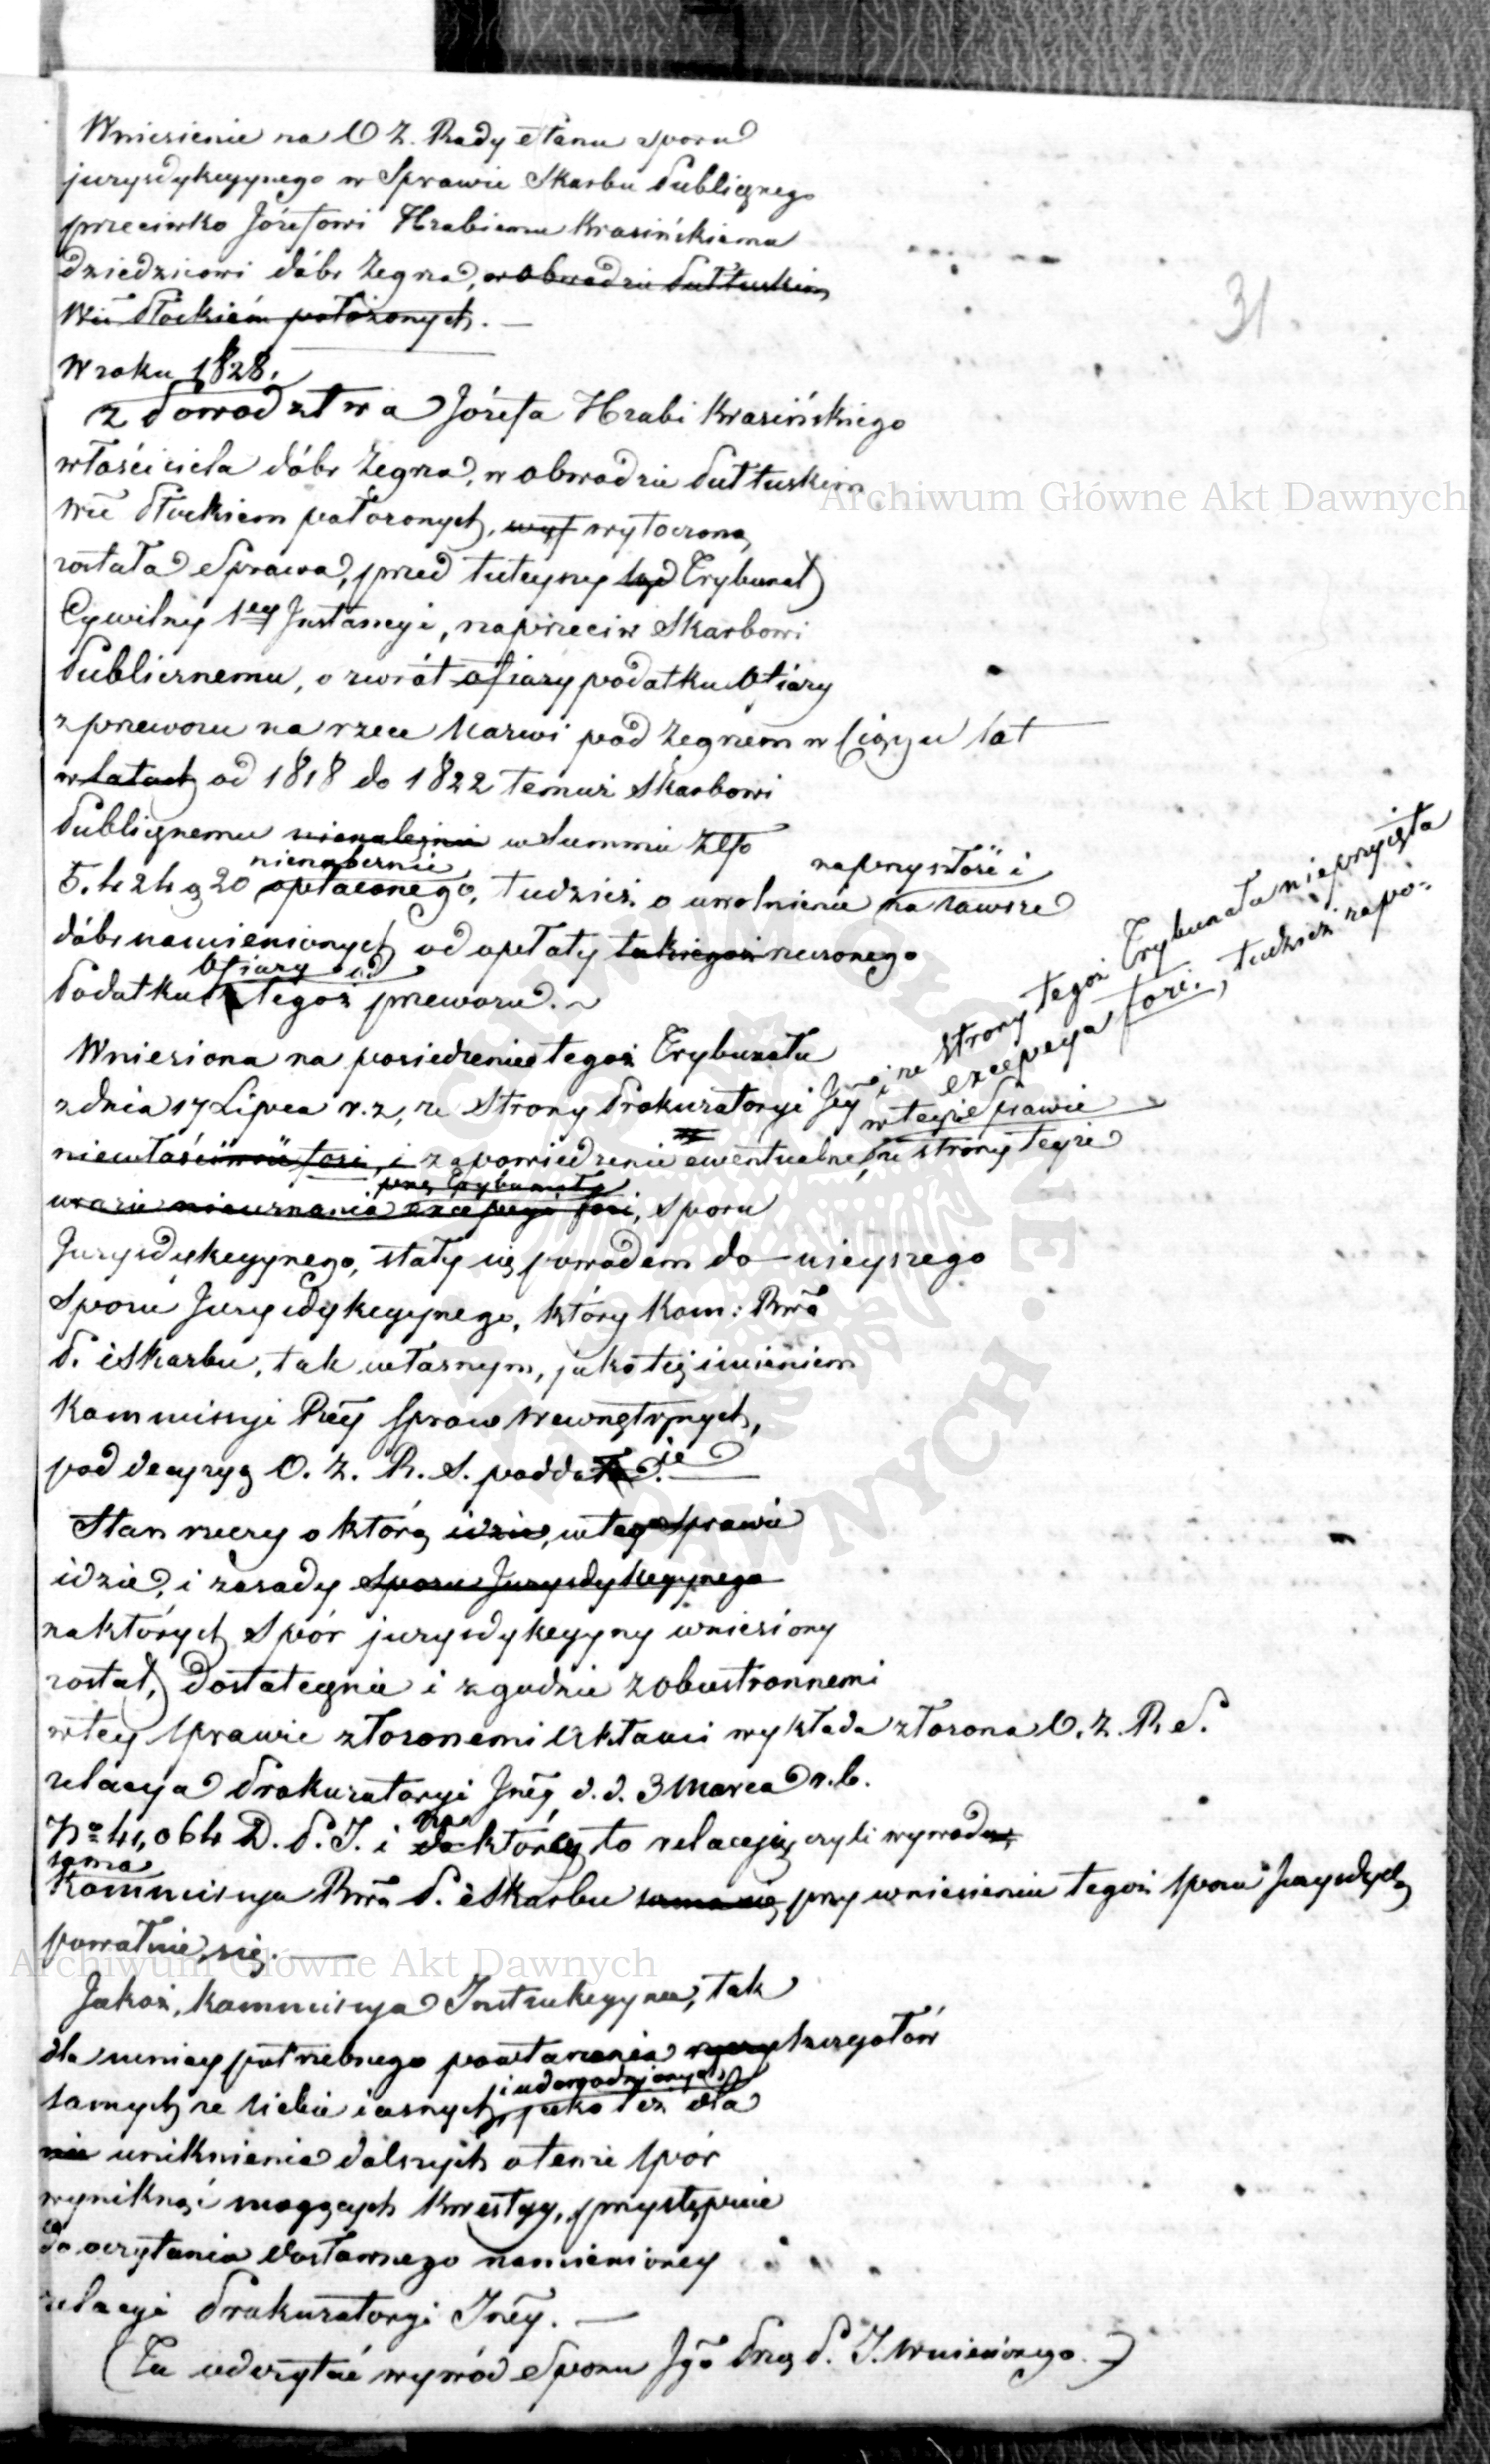 31.
Wniesienie na O Z. Rady Stanu sporu
jurysdykcyjnego w Sprawie Skarbu Publicznego
przeciwko Józefowi Hrabiemu Krasińskiemu
dziedzicowi dóbr Zegrza, w Obwodzie Pułtuskim
Wie Płockiem położonych. —
W roku 1828.
z Powodztwa Józefa Hrabi Krasińskiego
właściciela dóbr Zegrza, w Obwodzie Pułtuskim
Wie Płockiem położonych, wytoczoną
została Sprawa, przed tuteyszy Trybunał
Cywilny 1ey Instancyi, naprzeciw Skarbowi
Publicznemu, o zwrót ofiary podatku Ofiary
z przewozu na rzece Narwi pod Zegrzem w ciągu lat
w latach od 1818 do 1822 temuż Skarbowi
Publicznemu nienależnie w Summie Złp
nienależnie na przyszłość i
5.424 g 20 opłaconego, tudzież o uwolnienie na zawsze
dóbr namienionych od opłaty takiegoż rzeczonego
Ofiary od
Podatku z tegoż przewozu. ~
Wniesiona na posiedzenie tegoż Trybunału
z dnia 17 Lipca r. z, ze Strony Prokuratoryi Jey i ze strony tegoż Trybunału nieprzyięta
excepcya fori, tudzież zapo-
w teyże Sprawie
niewłaściwości fori, i zapowiedzenie ewentualne, ze strony teyże
przez Trybunał
w razie nieuznania excepcyi fori, Sporu
Jurysdykcyjnego, stały się powodem do ninieyszego
Sporu Jurysdykcyjnego, który Kom: Rwa
P. i Skarbu, tak własnym, jako też imieniem
Kommissyi Rey Spraw Wewnętrznych,
pod decyzyą O. Z. R. S. poddaje. —
Stan rzeczy o którą idzie, w tey Sprawie
idzie, i zasady Sporu Jurysdykcyjnego
na których Spór jurysdykcyjny wniesiony
został, dostatecznie i zgodnie z obustronnemi
w tey Sprawie złożonemi Aktami wykłada złożona O. Z. R. S.
relacya Prokuratoryi Jney d. d. 3 Marca r. b.
No 41,064 D. P. J. i na którey to relacyią czyli wywodu
sama
Kommissya Rwa P. i Skarbu sama się, przy wniesieniu tegoż Sporu Jurysdych
powołuie się. —
Jakoż, Kommissya Instrukcyyna, tak
dla uniey potrzebnego powtarzania szczegółów
i udowodnionych
samych ze siebie iasnych, jako też dla
nie uniknienia dalszych o tenże spór
wyniknąć mogących kwestyy, przystępuie
do oczytania dosłownego namienioney
relacyi Prokuratoryi Jney. —
(Tu odczytać wywód Sporu Jgo Prez P. J. wniesionego. )
Archiwum Główne Akt Dawnych
Archiwum Główne Akt Dawnych